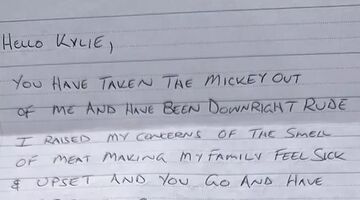 Hello Kylie,
You have taken the mickey out
of me and have been downright rude
I raised my concerns of the smell
of meat making my family feel sick
& upset and you go and have